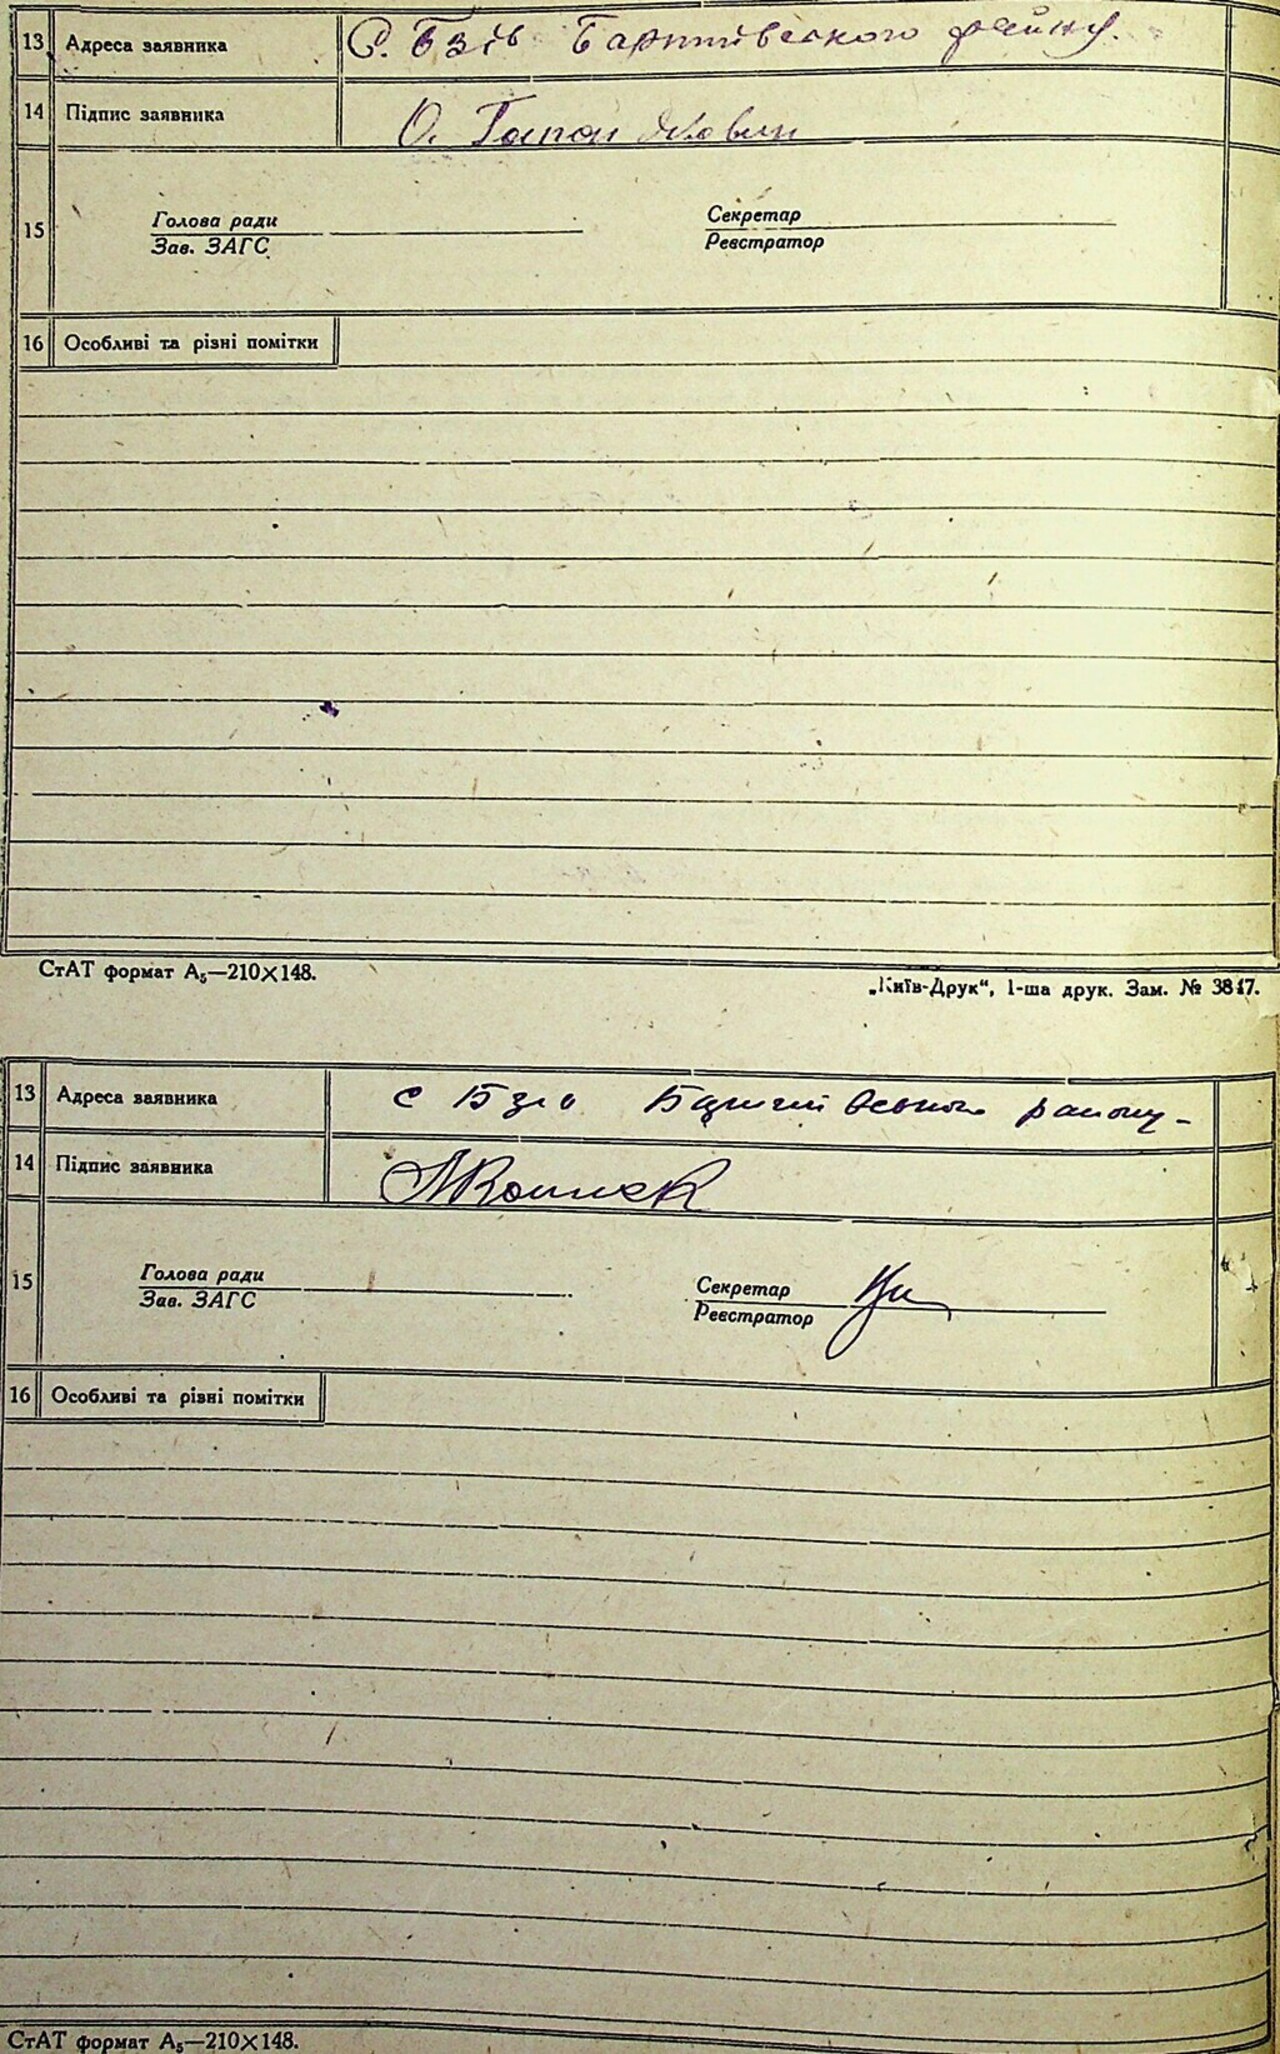 13 Адреса заявника С. Бзів Баришівського району.
14 Підпис заявника О. Гапон
15 Голова ради Секретар
Зав. ЗАГС Реєстратор
16 Особливі та різні помітки
СтАТ формат А₅—210×148.
„Київ-Друк“, 1-ша друк. Зам. № 3817.
13 Адреса заявника с Бзів Баришівського району
14 Підпис заявника
15 Голова ради Секретар
Зав. ЗАГС Реєстратор
16 Особливі та різні помітки
СтАТ формат А₅—210×148.